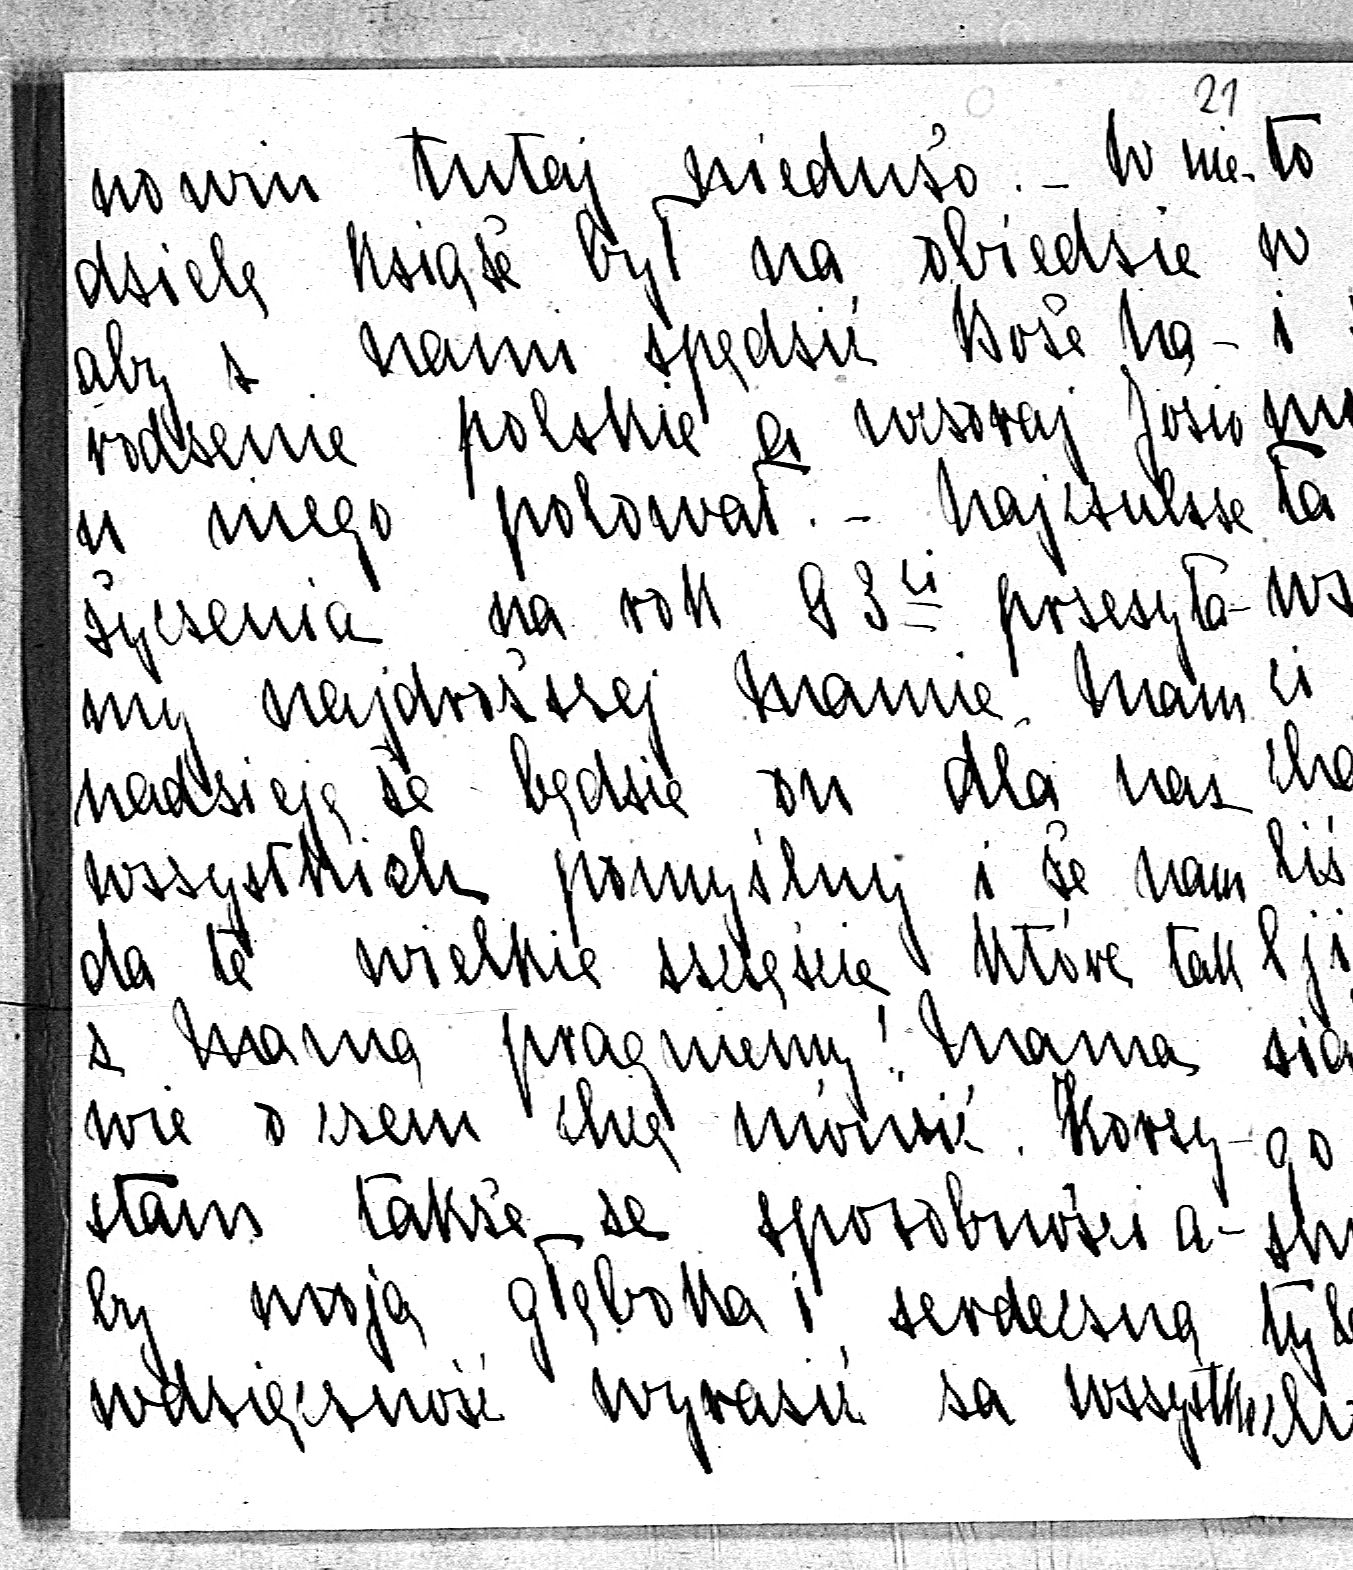 21
nowin tutaj niedużo. – W nie-
dzielę książe był na obiedzie
aby z nami spędzić Boże Na-
rodzenie polskie a wczoraj Józio
u niego polował. – Najczulsze
życzenia na rok 93ci przesyła-
my najdroższej Mamie. Mam
nadzieję że będzie on dla nas
wszystkich pomyślny i że nam
da te wielkie szczęście które tak
z Mamą pragniemy! Mama
wie o czem chcę mówić. Korzy-
stam także ze sposobności a-
by moją głęboka i serdeczną
wdzięczność wyrazić za wszystko
to
w
i
ta
ci
go